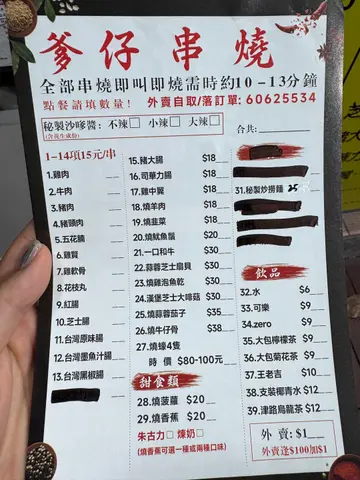 爹仔串燒
全部串燒即叫即燒需時約10-13分鐘
點餐請填數量! 外賣自取/落訂單: 60625534
秘製沙嗲醬: 不辣□ 小辣□ 大辣□
(含花生成份)
合共:
1-14項15元/串
1.雞肉
2.牛肉
3.豬肉
4.豬頸肉
5.五花腩
6.雞腎
7.雞軟骨
8.花枝丸
9.紅腸
10.芝士腸
11.台灣原味腸
12.台灣墨魚汁腸
13.台灣黑椒腸
15.豬大腸 $18
16.司華力腸 $18
17.雞中翼 $18
18.燒羊肉 $18
19.燒韮菜 $18
20.燒魷魚鬚 $20
21.一口和牛 $30
22.蒜蓉芝士扇貝 $30
23.燒雞泡魚乾 $30
24.漢堡芝士大啡菇 $30
25.燒蒜蓉茄子 $35
26.燒牛仔骨 $38
27.燒蠔4隻
時 價 $80-100元
甜食類
28.燒菠蘿 $20
29.燒香蕉 $20
朱古力□ 煉奶□
(燒香蕉可選一種或兩種口味)
31.秘製炒撈麵
飲品
32.水 $6
33.可樂 $9
34.zero $9
35.大包檸檬茶 $9
36.大包菊花茶 $9
37.王老吉 $10
38.支裝椰青水 $12
39.津路烏龍茶 $12
外 賣: $1
外賣逢$100加$1